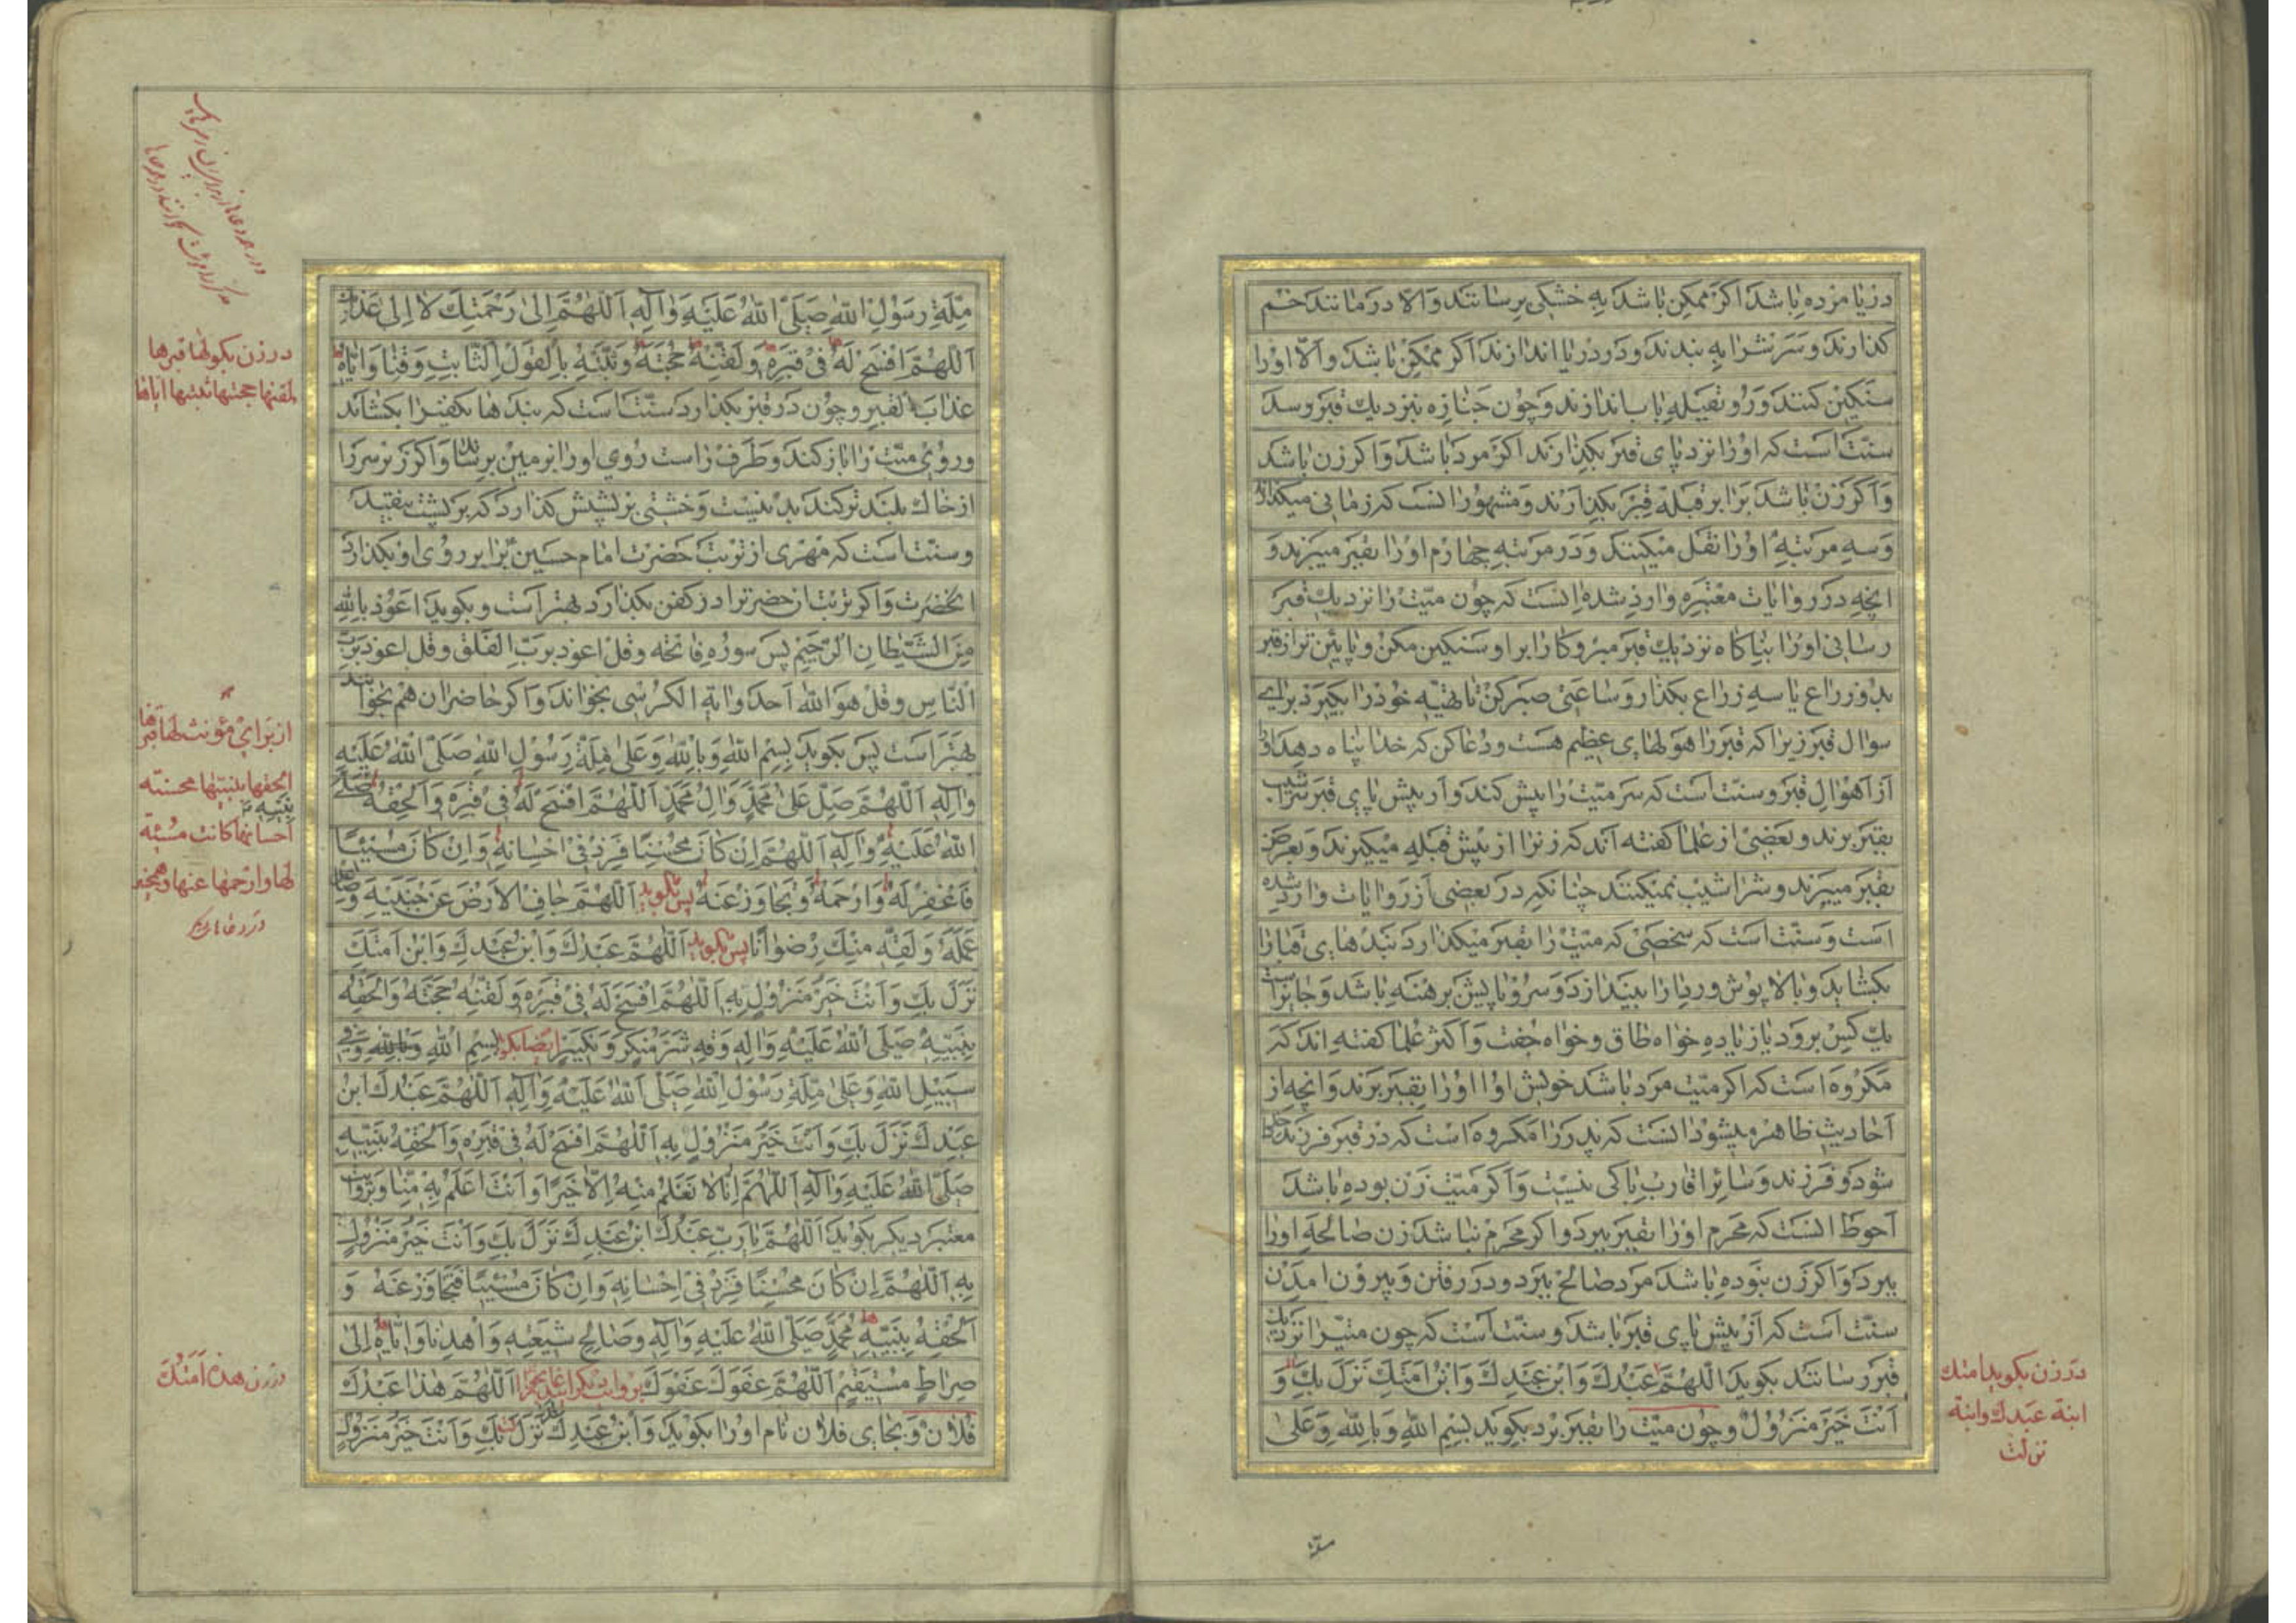 دریا مرده باشد اکر ممکن باشد به خشکی برسانند والا در مانند خم
کذارند و سرشرا به بندند و در دریا اندازند اکر ممکن باشد والا اورا
سنکین کنند و رو بقبله باب اندازند و چون جنازه بنزدیك قبر رسد
سنت است که اورا نزد پای قبر بکذارند اکر مرد باشد و اکر زن باشد
و اکر زن باشد برابر قبله قبر بکذارند و مشهور انست که زمانی میکذارند
و سه مرتبه اورا نقل میکنند و در مرتبه چهارم اورا بقبر میبرند و
انچه در روایات معتبره وارد شده انست که چون میت را نزدیك قبر
رسانی اورا بناکاه نزدیك قبر مبر و کارا بر او سنکین مکن و پایین تر از قبر
بدو زراع یا سه زراع بکذار و ساعتی صبر کن تا تهیه خود را بکیرد برای
سوال قبر زیرا که قبر را هولهای عظیم هست و دعا کن که خدا پناه دهد اورا
از اهوال قبر و سنت است که سر میت را پیش کند و از پیش پای قبر
بقبر برند و بعضی از علما کفته اند که زنرا از پیش قبله میکیرند و بعرض
بقبر میبرند و سراشیب نمیکنند چنانکه در بعضی از روایات وارد شده
است و سنت است که شخصی که میت را بقبر میکذارد بندهای قبا را
بکشاید و بالا پوش و ردا را بیندازد و سر و پایش برهنه باشد و جایز است
یك کس برود یا زیاده خواه طاق و خواه جفت و اکثر علما کفته اند که
مکروه است که اکر میت مرد باشد خویش او اورا بقبر برند و انچه از
احادیث ظاهر میشود انست که پدر را مکروه است که در قبر فرزند داخل
شود و فرزند و سائر اقارب باکی نیست و اکر میت زن بوده باشد
احوط انست که محرم اورا بقبر ببرد و اکر محرم نباشد زن صالحه اورا
ببرد و اکر زن نبوده باشد مرد صالح ببرد و در رفتن و بیرون امدن
سنت است که از پیش پای قبر باشد و سنت است که چون میترا نزدیك
قبر رسانند بکوید اللهم عبدك وابن عبدك وابن امتك نزل بك و
انت خیر منزول و چون میت را بقبر برد بکوید بسم الله وبالله وعلی
در زن بکوید امتك
ابنة عبدك وابنة
نزلت
ملة رسول الله صلی الله علیه وآله اللهم الی رحمتك لا الی عذابك
اللهم افسح له فی قبره ولقنه حجته وثبته بالقول الثابت وقنا وایاه
عذاب القبر و چون در قبر بکذارد سنت است که بندها یکفنرا بکشاند
و روی میت را باز کند و طرف راست روی اورا بر زمین برساند و اکر زیر سر را
از خاك بلند تر کند بد نیست و خشتی بر پشتش کذارد که بر پشت نیفتد
و سنت است که مهری از تربت حضرت امام حسین برابر روی او بکذارد
انحضرت و اکر تربت ان حضرترا در کفن بکذارد بهتر است و بکوید اعوذ بالله
من الشیطان الرجیم پس سوره فاتحه وقل اعوذ برب الفلق وقل اعوذ برب
الناس وقل هو الله احد وایة الکرسی بخواند و اکر حاضران هم بخوانند
بهتر است پس بکوید بسم الله وبالله وعلی ملة رسول الله صلی الله علیه
وآله اللهم صل علی محمد وال محمد اللهم افسح له فی قبره والحقه صلی
الله علیه وآله اللهم ان کان محسنا فزد فی احسانه وان کان مسیئا
فاغفر له وارحمه وتجاوز عنه پس بکوید اللهم جاف الارض عن جنبیه وصاعد
عمله ولقه منك رضوانا پس بکوید اللهم عبدك وابن عبدك وابن امتك
نزل بك وانت خیر منزول به اللهم افسح له فی قبره ولقنه حجته والحقه
بنبیه صلی الله علیه واله وقه شر منکر ونکیر ایضا بکوید بسم الله وبالله وفی
سبیل الله وعلی ملة رسول الله صلی الله علیه وآله اللهم عبدك ابن
عبدك نزل بك وانت خیر منزول به اللهم افسح له فی قبره والحقه بنبیه
صلی الله علیه وآله اللهم انا لا نعلم منه الا خیرا وانت اعلم به منا وبروایت
معتبر دیکر بکوید اللهم یا رب عبدك ابن عبدك نزل بك وانت خیر منزول
به اللهم ان کان محسنا فزد فی احسانه وان کان مسیئا فتجاوز عنه و
الحقه بنبیه محمد صلی الله علیه وآله وصالح شیعته واهدنا وایاه الی
صراط مستقیم اللهم عفوك عفوك بروایت دیکر اللهم هذا عبدك
فلان و بجای فلان نام اورا بکوید وابن عبدك نزل بك وانت خیر منزول
در زن بکو لها قبرها
لقنها حجتها ثبتها ایاها
از برای مؤنث لها قبرها
الحقها بنبیها محسنته
احسانها کانت مسیئة
لها وارحمها عنها
در زن هذه امتك